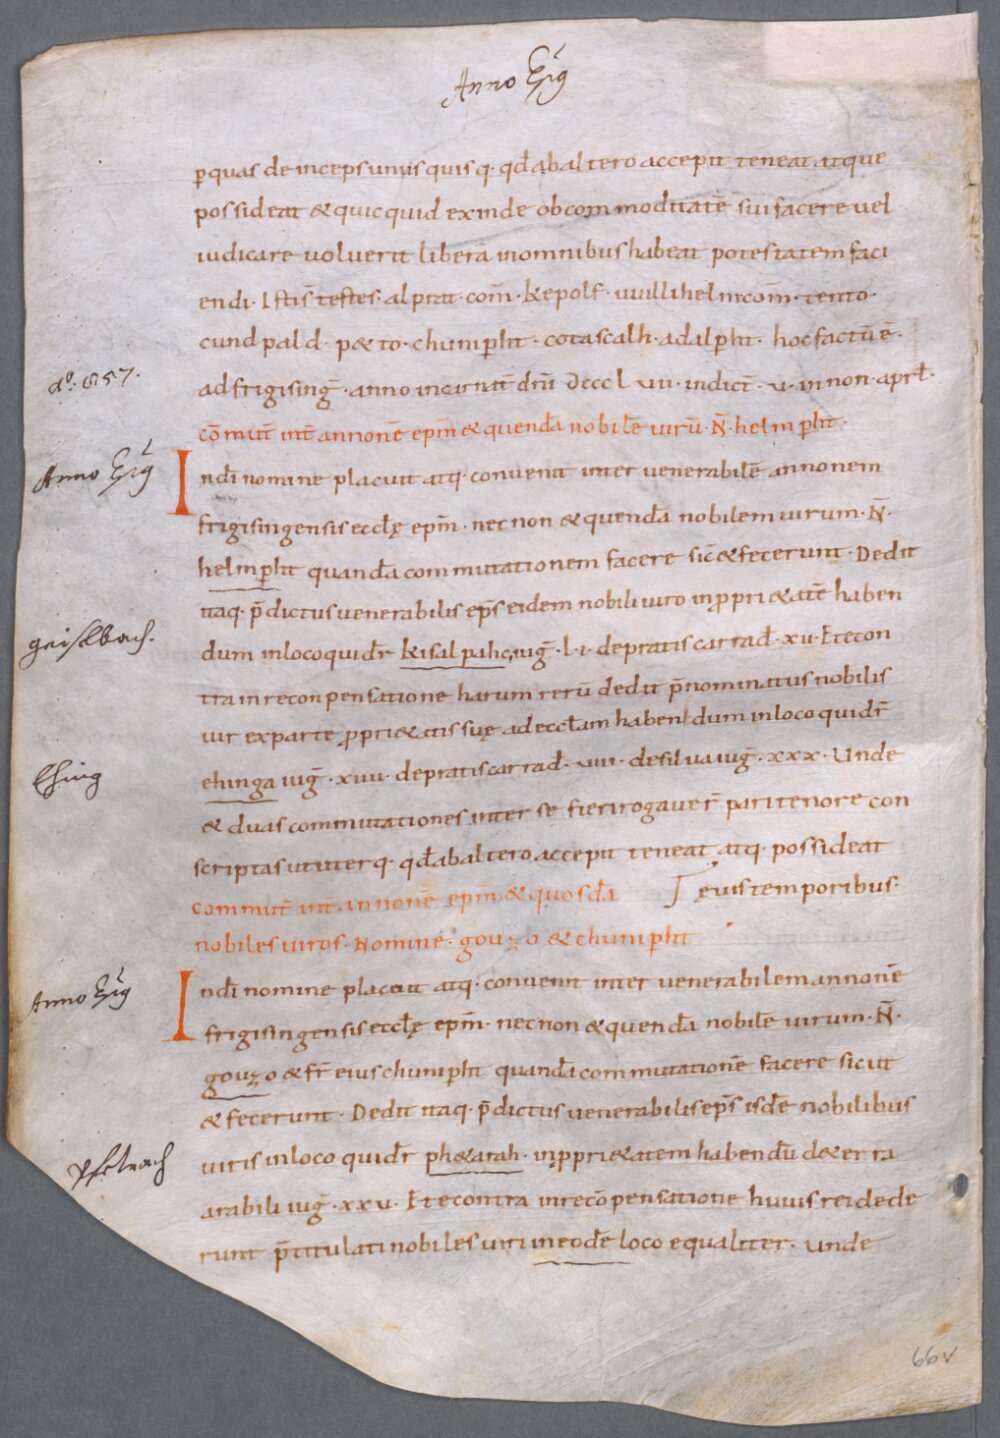 Anno Ep̄s
p̱quas deinceps unusquisq· qđ abaltero accepit teneat atque
possideat & quicquid exinde obcommoditatē sui facere uel
iudicare uoluerit liberā inomnibus habeat potestatem faci
endi· Isti s̄ testes· alprat· com̄· kepolf· uuillihelm com̄· tento·
cundpald· p&to· chunip̱ht· cotascalh· adalp̱ht· hoc factū ē·
ad frigisinḡ· anno incarnat̄ dn̄i dccc l vii· indict̄· v· in non· aprł·
aº· 857·
cōmut̄ int̄ annonē ep̄m & quendā nobilē uirū· N̄· helmp̱ht·
Anno Ep̄s
Indī nomine placuit atq· conuenit inter uenerabilē annonem
frigisingensis ecclę ep̄m· necnon & quendā nobilem uirum· N̄·
helmp̱ht quandā commutationem facere sic̄ & fecerunt· Dedit
itaq· p̄dictus uenerabilis ep̄s eidem nobili uiro inp̱pri&atē haben
dum inloco qui dr̄ kisalpahc, iuḡ· l·i· de pratis carrad̄· xv· Et econ
geislbach·
tra inreconpensatione harum rerū dedit p̄nominatus nobilis
uir exparte p̱pri&atis suę ad eccłam habendum inloco qui dr̄
ehinga iuḡ· xvii· de pratis carrad̄· viii· de silua iuḡ· xxx· Unde
Ehing
& duas commutationes inter se fieri rogauer̄ pari tenore con
scriptas ut uterq· qđ abaltero accepit teneat atq· possideat
ęuis temporibus·
commut̄ int̄ annonē ep̄m & quosdā
nobiles uiros· Nomine· gouzo & chunip̱ht
Anno Ep̄s
Indī nomine placuit atq· conuenit inter uenerabilem annonē
frigisingensis ecclę ep̄m· necnon & quendā nobilē uirum· N̄·
gouzo & fr̄ eius chunip̱ht quandā commutationē facere sicut
& fecerunt· Dedit itaq· p̄dictus uenerabilis ep̄s isdē nobilibus
uiris inloco qui dr̄ ph&arah· inp̱pri&atem habendū de terra
Pfetrach
arabili iuḡ· xxv· Et econtra inrecōpensatione huius rei dede
runt p̄titulati nobiles uiri ineodē loco equaliter· unde
66v